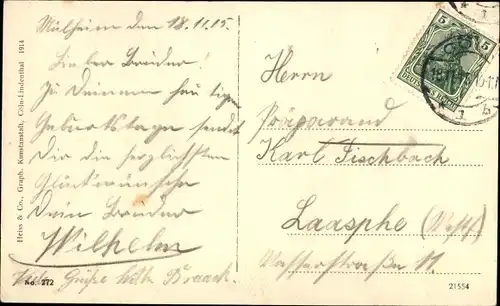 Mülheim den 18.11.15.
Lieber Bruder!
Zu Deinem heutigen
Geburtstage sendet
Dir die herzlichsten
Glückwünsche
Dein Bruder
Wilhelm
Viele Grüße
No. 272
Heiss & Co., Graph. Kunstanstalt, Cöln-Lindenthal 1914
5 5
Herrn
Karl Fischbach
Laasphe (Westf.)
Wasserstraße 11.
21554